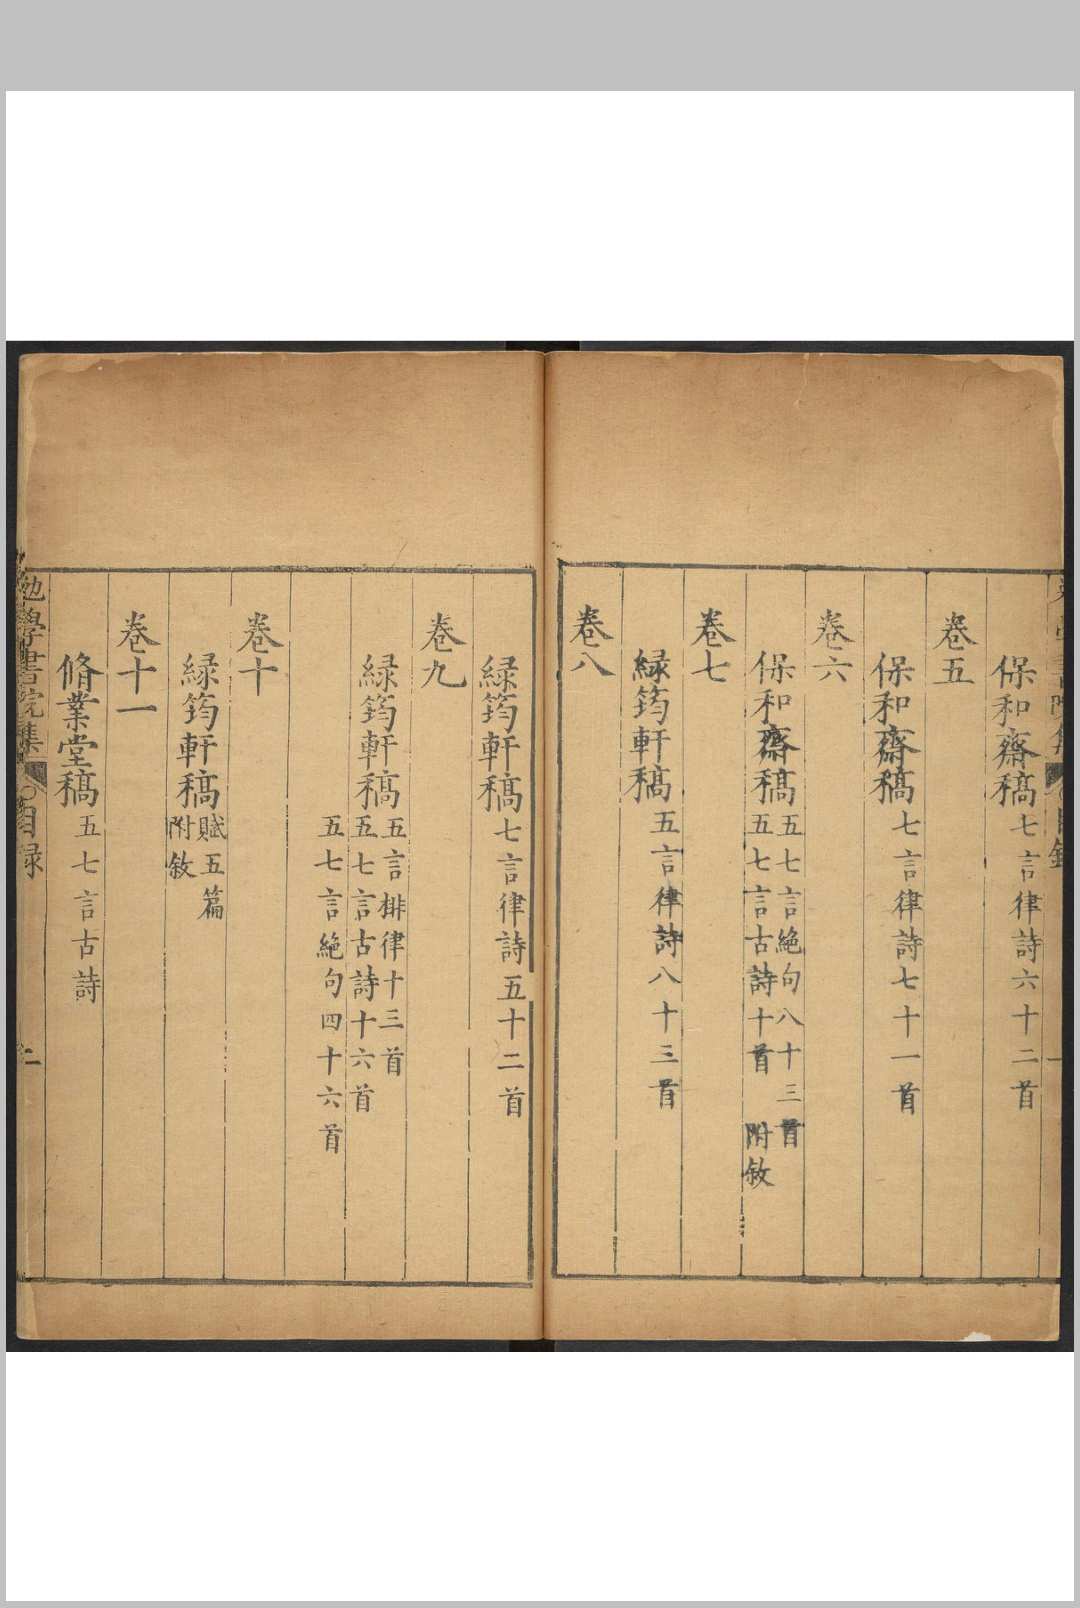 保和齋稿七言律詩六十二首
卷五
保和齋稿七言律詩七十一首
卷六
保和齋稿五七言絶句八十三首
五七言古詩十首　附敘
卷七
緑筠軒稿五言律詩八十三首
卷八
緑筠軒稿七言律詩五十二首
卷九
緑筠軒稿五言排律十三首
五七言古詩十六首
五七言絶句四十六首
卷十
緑筠軒稿賦五篇
附敘
卷十一
脩業堂稿五七言古詩
勉學書院集
目録
二